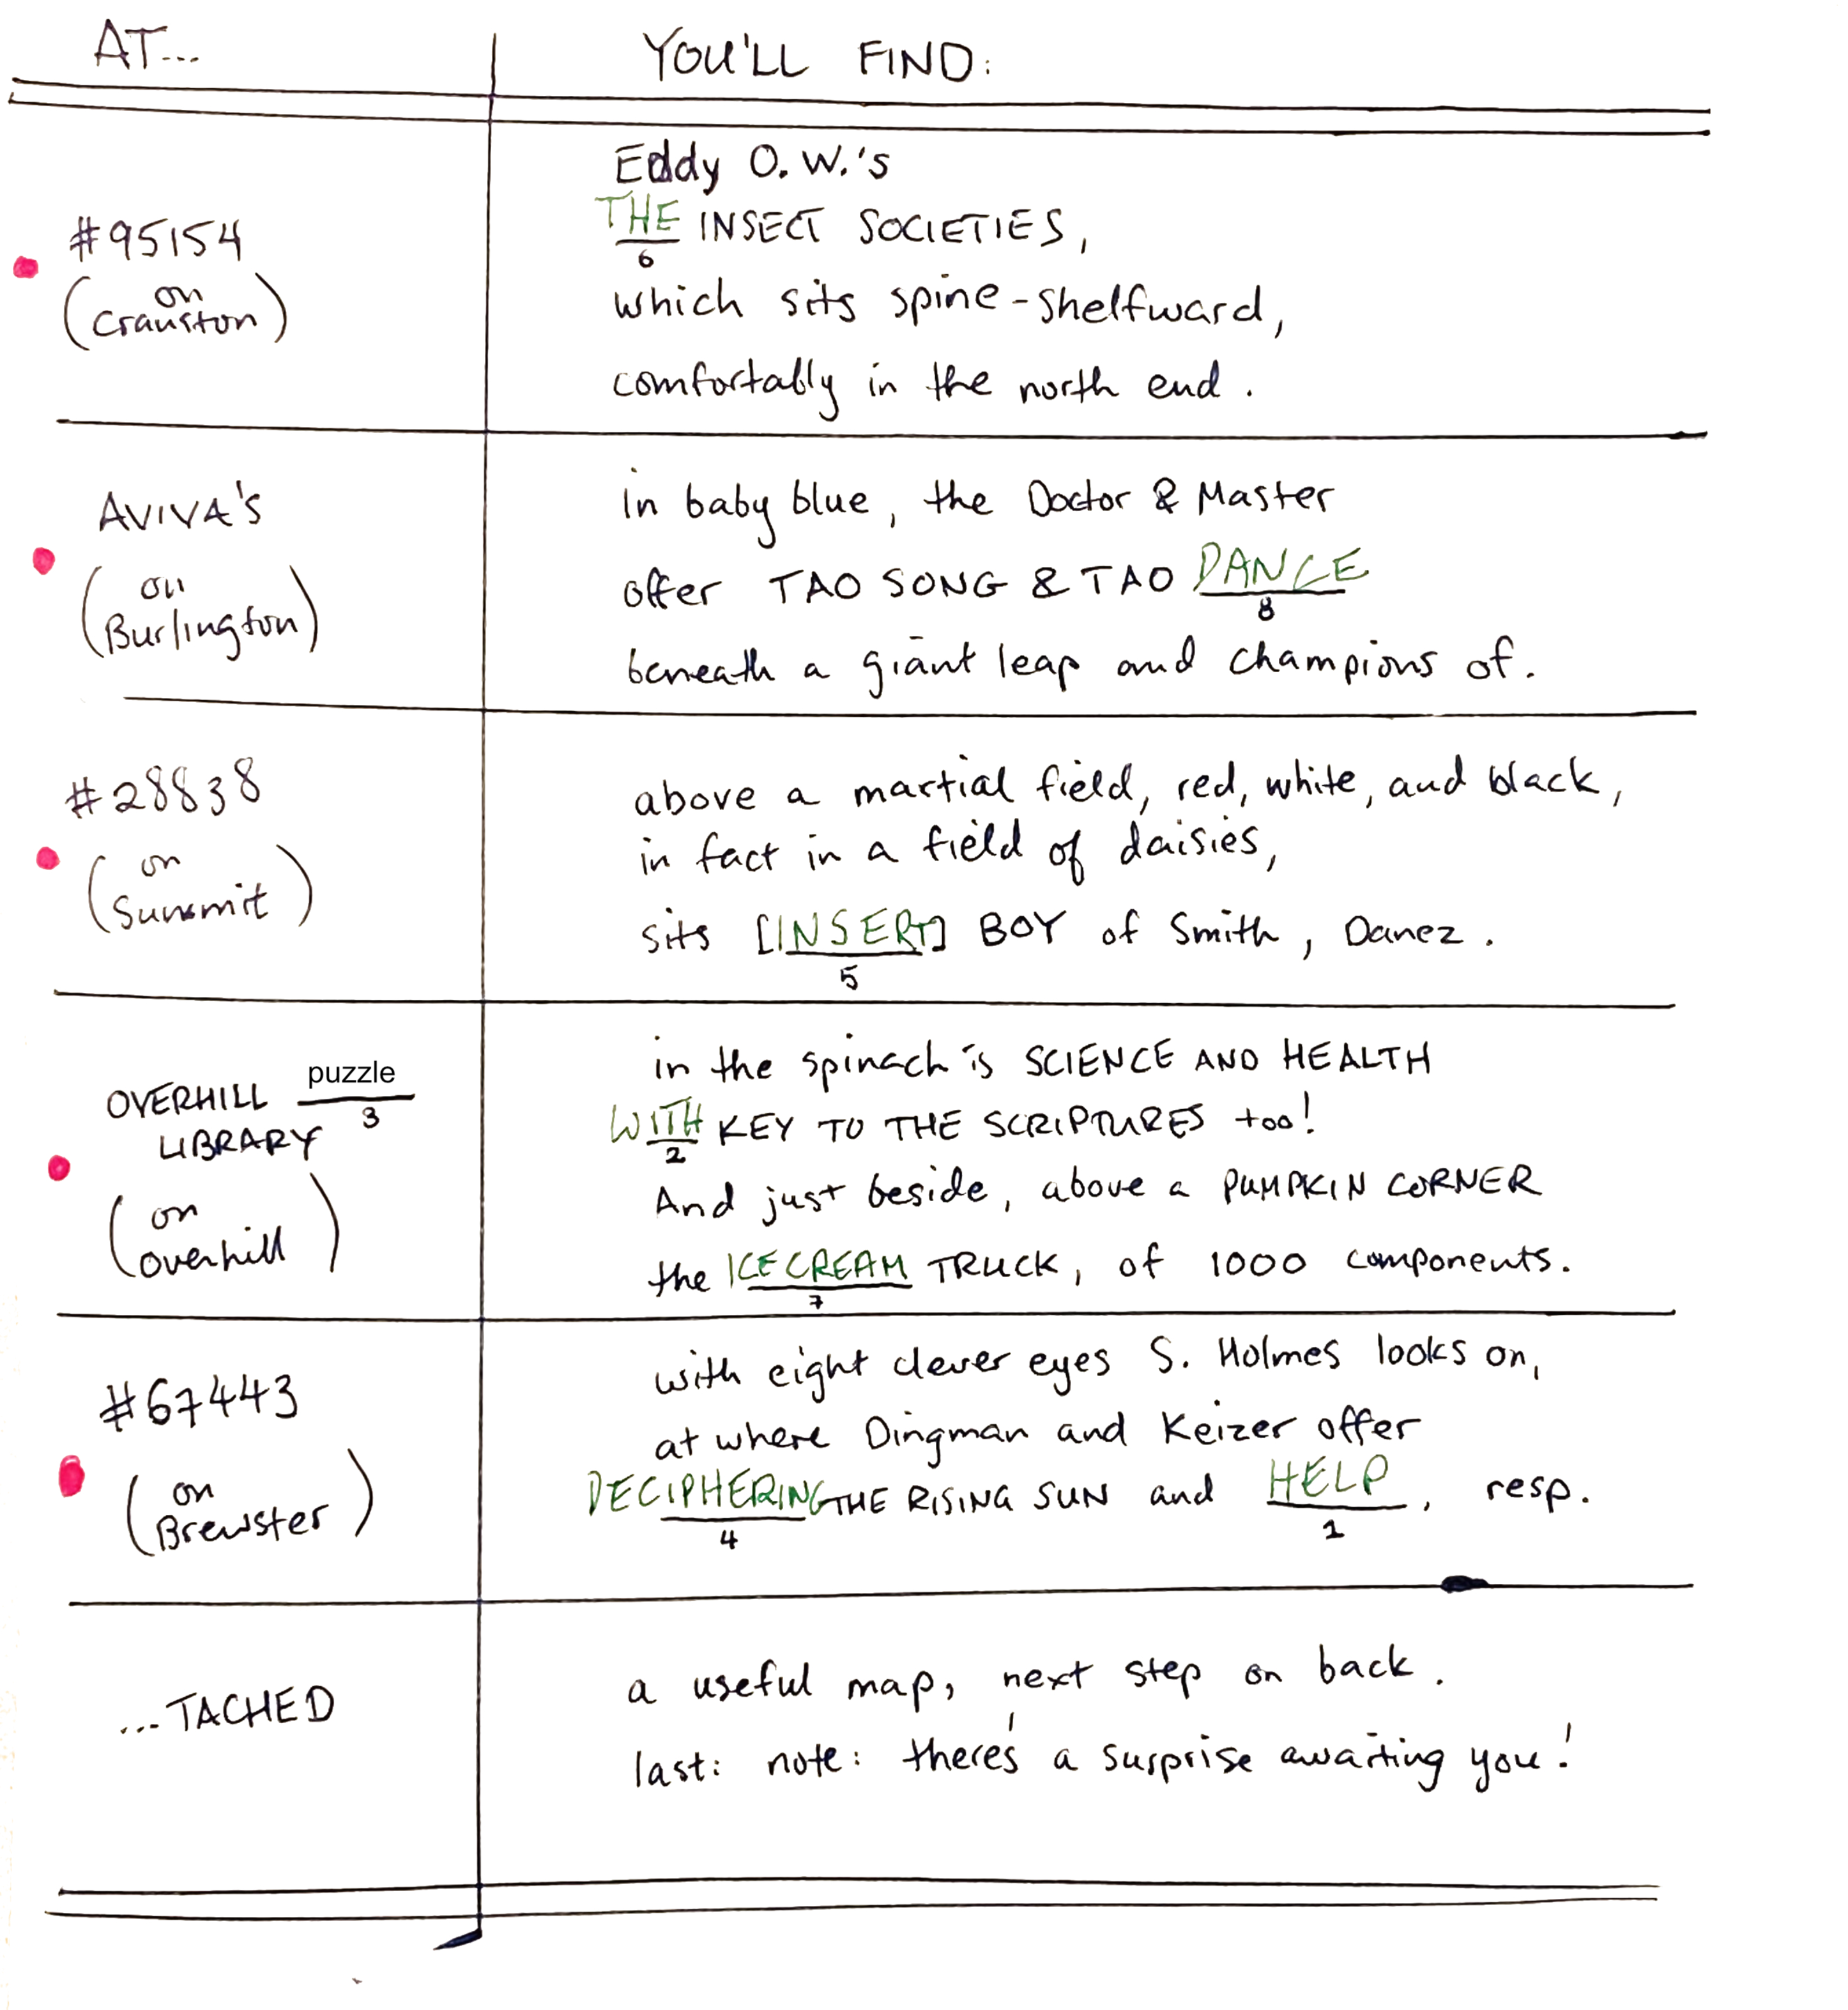 AT...
YOU'LL FIND:
#95154
(on
Cranston)
Eddy O.W.'s
THE INSECT SOCIETIES,
6
which sits spine-shelfward,
comfortably in the north end.
AVIVA'S
(on
Burlington)
in baby blue, the Doctor & Master
offer TAO SONG & TAO DANCE
8
beneath a giant leap and champions of.
#28838
(on
Summit)
above a martial field, red, white, and black,
in fact in a field of daisies,
sits [INSERT] BOY of Smith, Danez.
5
OVERHILL puzzle
3
LIBRARY
(on
overhill)
in the spinach is SCIENCE AND HEALTH
WITH KEY TO THE SCRIPTURES too!
2
And just beside, above a PUMPKIN CORNER
the ICECREAM TRUCK, of 1000 components.
7
#67443
(on
Brewster)
with eight clever eyes S. Holmes looks on,
at where Dingman and Keizer offer
DECIPHERING THE RISING SUN and HELP, resp.
4 1
...TACHED
a useful map, next step on back.
last: note: there's a surprise awaiting you!